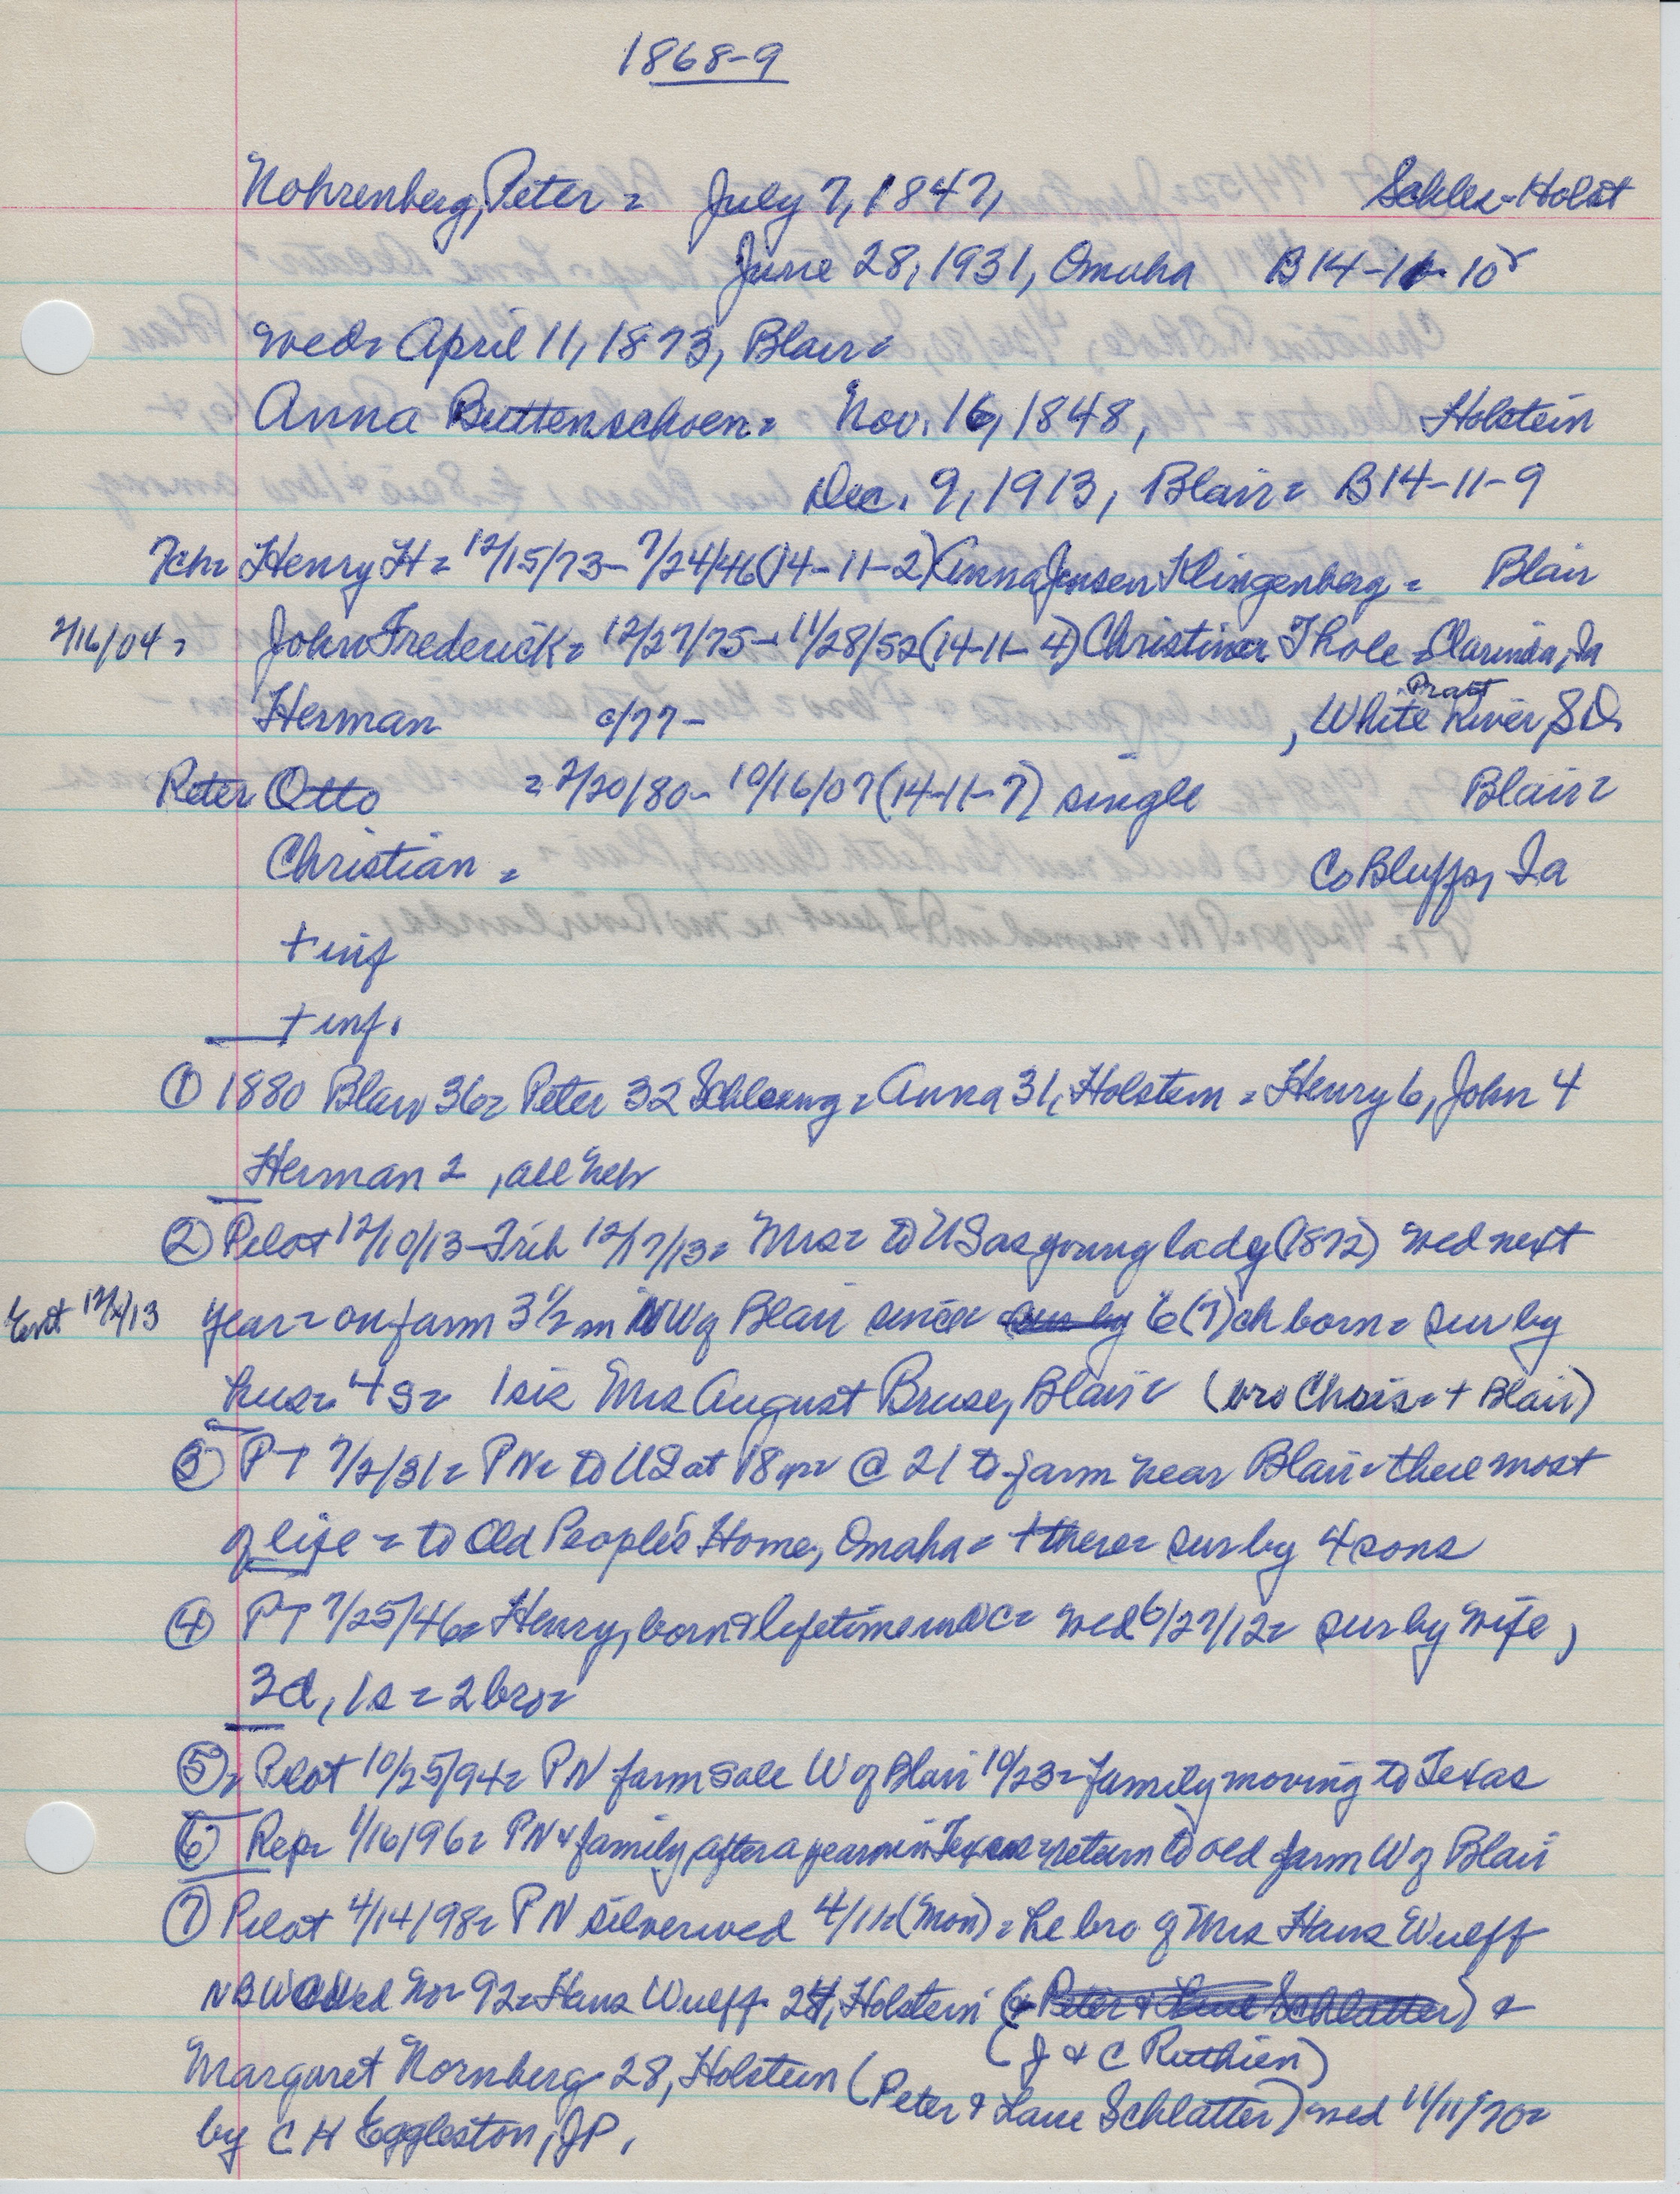 1868-9
Nohrenberg, Peter = July 7, 1847, Schles-Holst
June 28, 1931, Omaha B14-11-10
wed= April 11, 1873, Blair=
Anna Buttenschoen= Nov. 16, 1848, Holstein
Dec. 9, 1913, Blair= B14-11-9
7ch= Henry H= 12/15/73- 7/24/46 (14-11-2) (Anna Jensen Klingenberg= Blair
2/16/04= John Frederick= 12/27/75- 11/28/52 (14-11-4) Christina Thole= Clarinda, Ia
Pratt
Herman c/77- , White River, S.D.
Peter Otto = 2/20/80- 10/16/07 (14-11-7) single Blair=
Christian = Co Bluffs, Ia
+ inf
+ inf.
① 1880 Blair 36= Peter 32 Schleswg= Anna 31, Holstein= Henry 6, John 4
Herman 2, all Neb
② Pilot 12/10/13- Trib 12/17/13= Mrs= to US as young lady (1872) wed next
Ent 12/ /13 year= on farm 3 1/2 m NW of Blair since sur by 6(7) ch born= sur by
hus= 4 s= 1 sis Mrs August Bruse, Blair= (bro Chris= + Blair)
③ PT 7/2/31= PN= to US at 18 yr= @ 21 to farm near Blair= there most
of life= to Old People's Home, Omaha= + there= sur by 4 sons
④ PT 7/25/46= Henry, born & lifetime in WC= wed 6/27/12= sur by wife,
3d, 1s= 2 bro=
⑤= Pilot 10/25/94= PN farm sale W of Blair 10/23= family moving to Texas
⑥ Rep= 1/16/96= PN & family, after a year in Texas= return to old farm W of Blair
⑦ Pilot 4/14/98= PN silver wed 4/11= (Mon)= he bro of Mrs Hans Wulff
NB WC Wed No= 92= Hans Wulff 24, Holstein (& Peter & Lane Schlatter) &
(J & C Ruthien)
Margaret Nornberg 28, Holstein (Peter & Lane Schlatter) wed 11/11/70=
by C H Eggleston, JP.